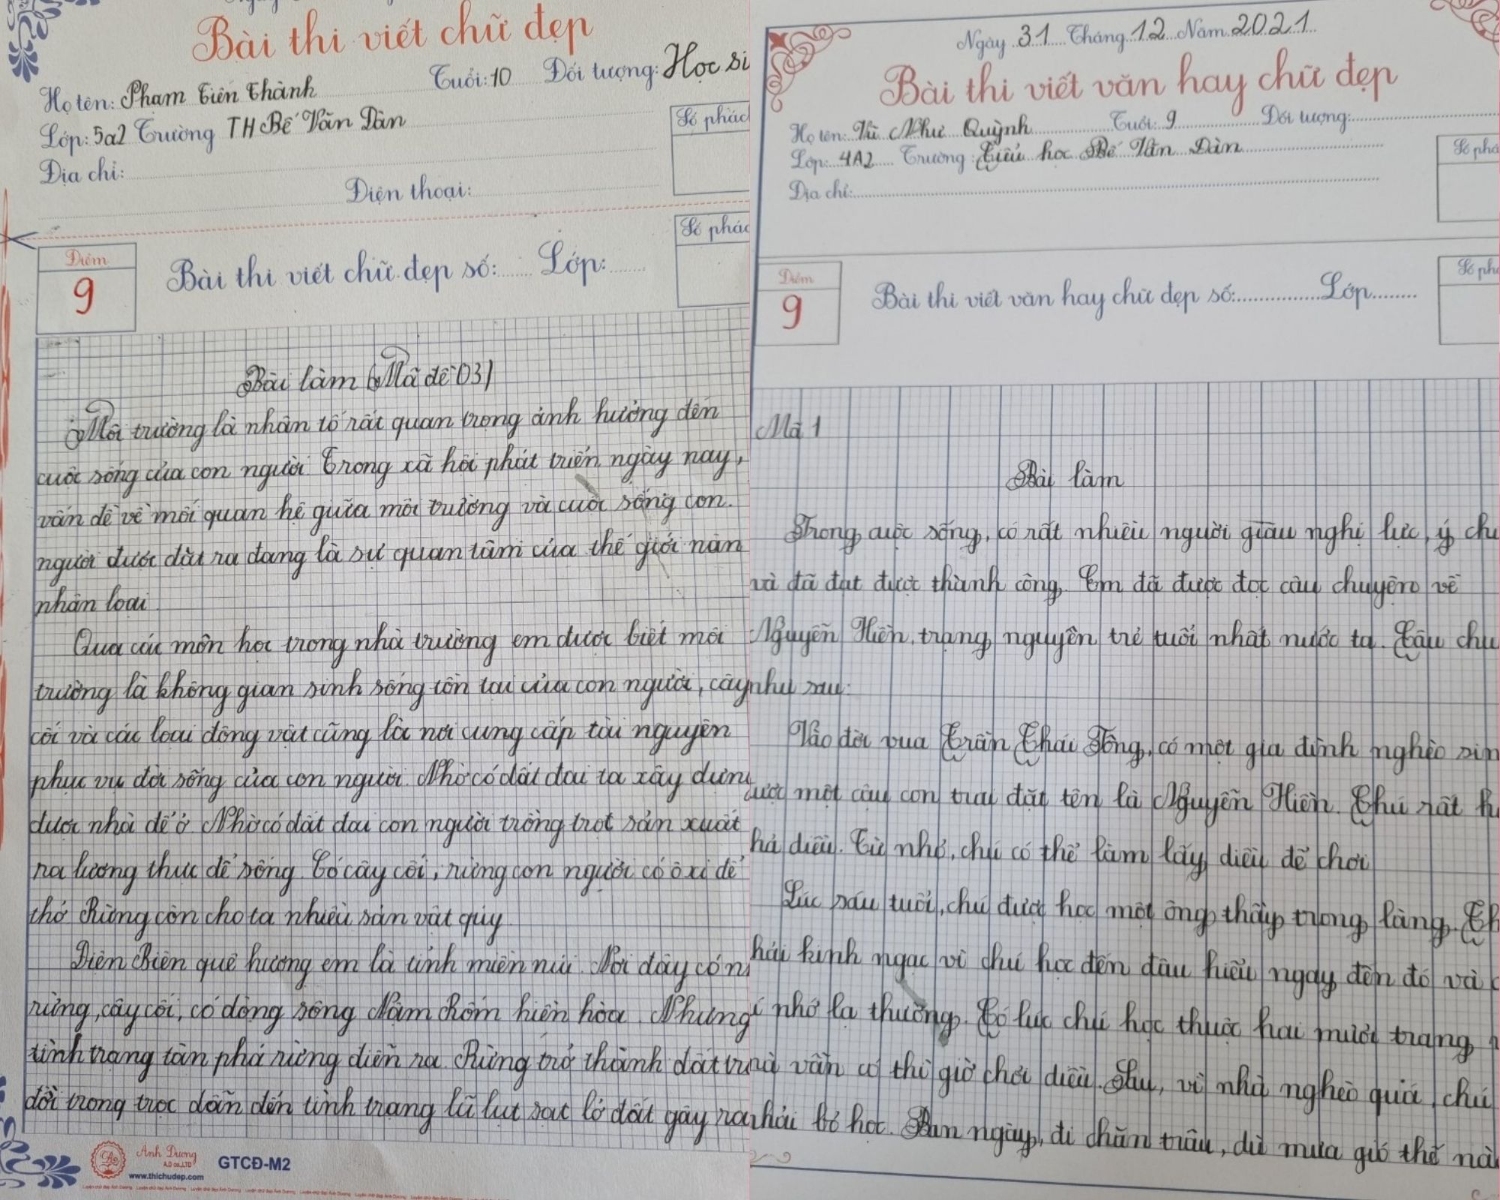 Bài thi viết chữ đẹp
Họ tên: Phạm Tiến Thành Tuổi: 10 Đối tượng: Học si
Lớp: 5a2 Trường TH Bế Văn Đàn
Địa chỉ:
Điện thoại:
Số phách
Số phách
Điểm
9
Bài thi viết chữ đẹp số: Lớp:
Bài làm (Mã đề 03)
Môi trường là nhân tố rất quan trọng ảnh hưởng đến
cuộc sống của con người Trong xã hội phát triển ngày nay,
vấn đề về mối quan hệ giữa môi trường và cuộc sống con
người được đặt ra đang là sự quan tâm của thế giới nân
nhân loại
Qua các môn học trong nhà trường em được biết môi
trường là không gian sinh sống tồn tại của con người, cây
cối và các loại động vật cũng là nơi cung cấp tài nguyên
phục vụ đời sống của con người. Nhờ có đất đai ta xây dựng
được nhà để ở Nhờ có đất đai con người trồng trọt sản xuất
ra lương thực để sống Có cây cối, rừng con người có ôxi để
thở Rừng còn cho ta nhiều sản vật quý
Điện Biên quê hương em là tỉnh miền núi. Nơi đây có n
rừng, cây cối, có dòng sông Nậm Rốm hiền hòa. Nhưng
tình trạng tàn phá rừng diễn ra Rừng trở thành đất tr
đồi trong trọc dẫn đến tình trạng lũ lụt sạt lở đất gây ra
Ánh Dương
A.D co.,LTD
www.thichudep.com
GTCĐ-M2
Ngày 31 Tháng 12 Năm 2021
Bài thi viết văn hay chữ đẹp
Họ tên: Vũ Như Quỳnh Tuổi: 9 Đối tượng:
Lớp: 4A2 Trường: Tiểu học Bế Văn Đàn
Địa chỉ:
Số phá
Số phá
Điểm
9
Bài thi viết văn hay chữ đẹp số: Lớp
Mã 1
Bài làm
Trong cuộc sống, có rất nhiều người giàu nghị lực, ý chí
và đã đạt được thành công, Em đã được đọc câu chuyện về
Nguyễn Hiền, trạng nguyên trẻ tuổi nhất nước ta. Câu chu
như sau:
Vào đời vua Trần Thái Tông, có một gia đình nghèo sin
được một cậu con trai đặt tên là Nguyễn Hiền. Chú rất h
thả diều. Từ nhỏ, chú có thể làm lấy diều để chơi
Lúc sáu tuổi, chú được học một ông thầy trong làng. Th
phải kinh ngạc vì chú học đến đâu hiểu ngay đến đó và c
trí nhớ lạ thường. Có lúc chú học thuộc hai mươi trang
mà vẫn có thì giờ chơi diều. Sau, vì nhà nghèo quá, chú
phải bỏ học. Ban ngày, đi chăn trâu, dù mưa gió thế nà